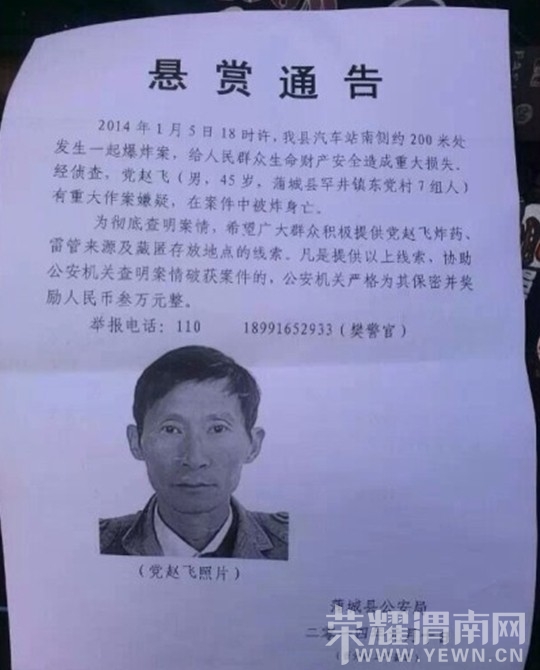 悬赏通告
2014年1月5日18时许,我县汽车站南侧约200米处
发生一起爆炸案,给人民群众生命财产安全造成重大损失。
经侦查,党赵飞(男,45岁,蒲城县罕井镇东党村7组人)
有重大作案嫌疑,在案件中被炸身亡。
为彻底查明案情,希望广大群众积极提供党赵飞炸药、
雷管来源及藏匿存放地点的线索。凡是提供以上线索,协助
公安机关查明案情破获案件的,公安机关严格为其保密并奖
励人民币叁万元整。
举报电话:110 18991652933(樊警官)
(党赵飞照片)
蒲城县公安局
荣耀渭南网
WWW.YEWN.CN